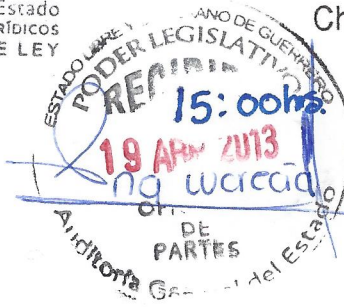 Estado
RÍDICOS
E LEY
Ch
ESTADO LIBRE Y
ANO DE GUERRERO
PODER LEGISLATIVO
RECIBIDO
15:00hrs.
19 ABR 2013
Lucrecia
DE
PARTES
Auditoría General del Estado